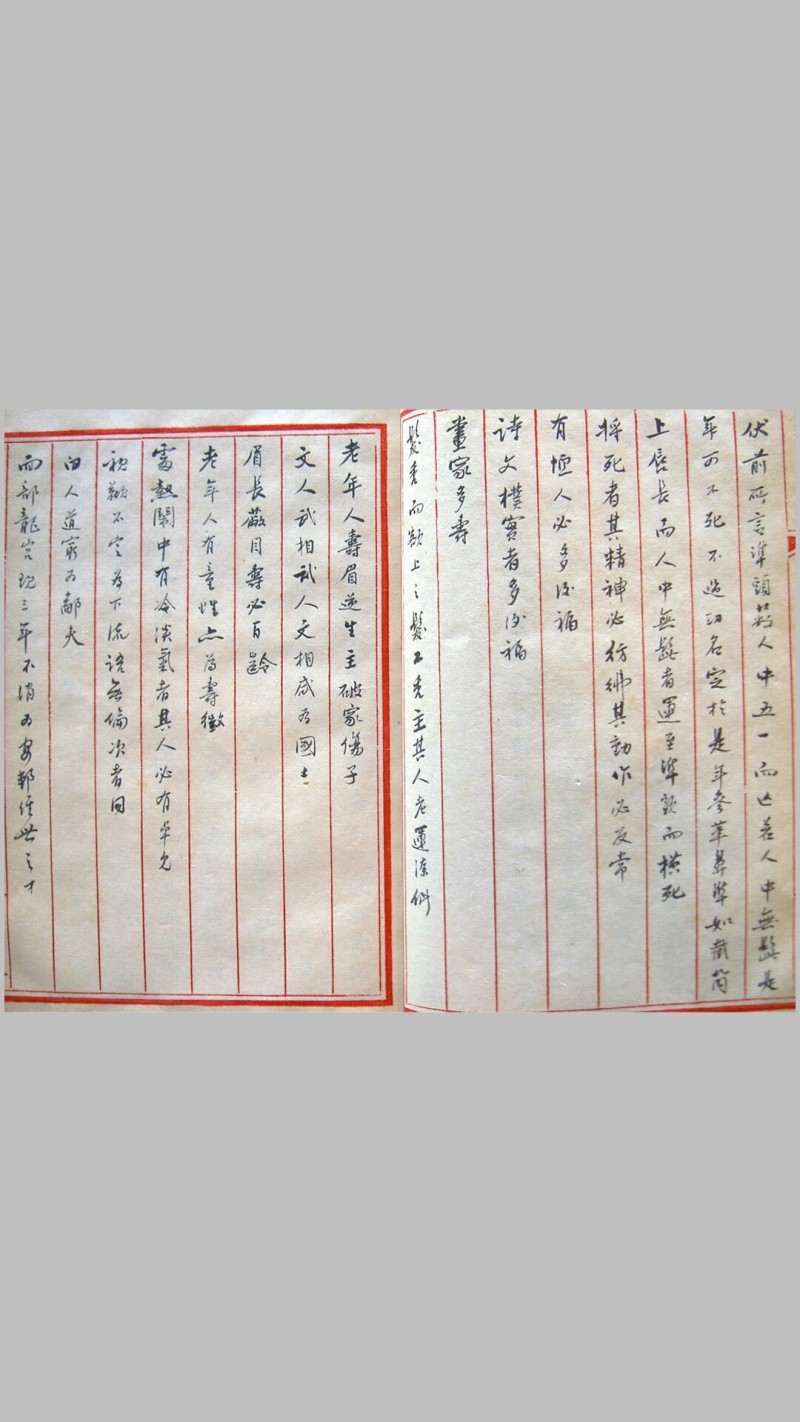 伏前所言準頭葬人中五一而亡若人中無髭是
年可不死不過功名定於是年參革鼻準如截筒
上唇長而人中無髭者運至準頭而橫死
將死者其精神必彷彿其動作必反常
有恆人必多後福
詩文樸實者多後福
畫家多壽
髮禿而額上之髮不禿主其人老運潦倒
老年人壽眉逆生主破家傷子
文人武相武人文相咸為國士
眉長蔽目壽必百齡
老年人有童性亦為壽徵
當熱鬧中有冷淡氣者其人必有卓允
視瞻不定為下流語無倫次者同
白人道窮為鄙夫
而部龍宮現三年不消為安邦經世之才